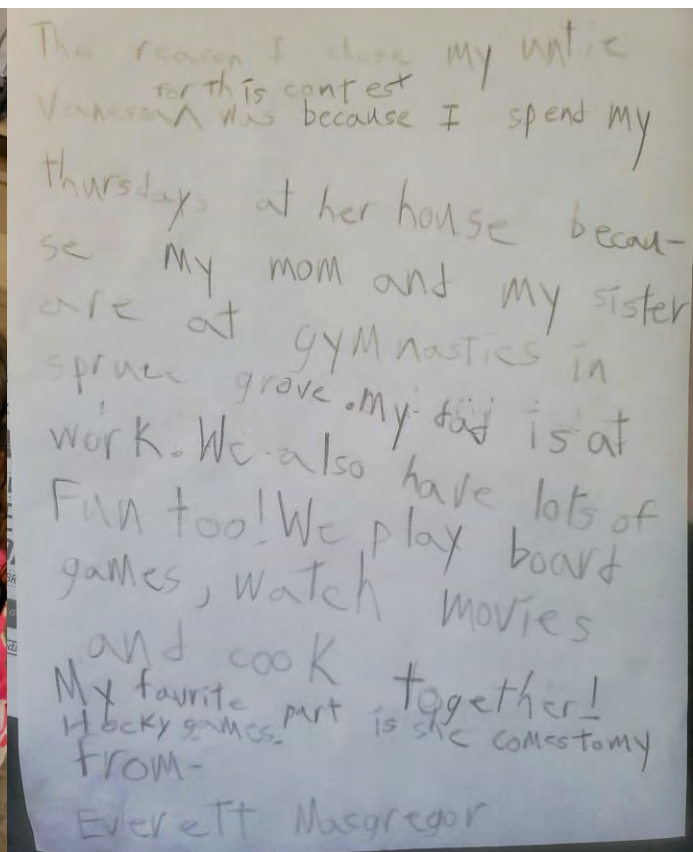 The reason I chose my untie
for this contest
Vanessa was because I spend my
thursdays at her house becau-
se my mom and my sister
are at gymnastics in
spruce grove. my dad is at
work. We also have lots of
Fun too! We play board
games, watch movies
and cook together!
My favrite part is she comes to my
Hocky games.
from-
Everett Macgregor